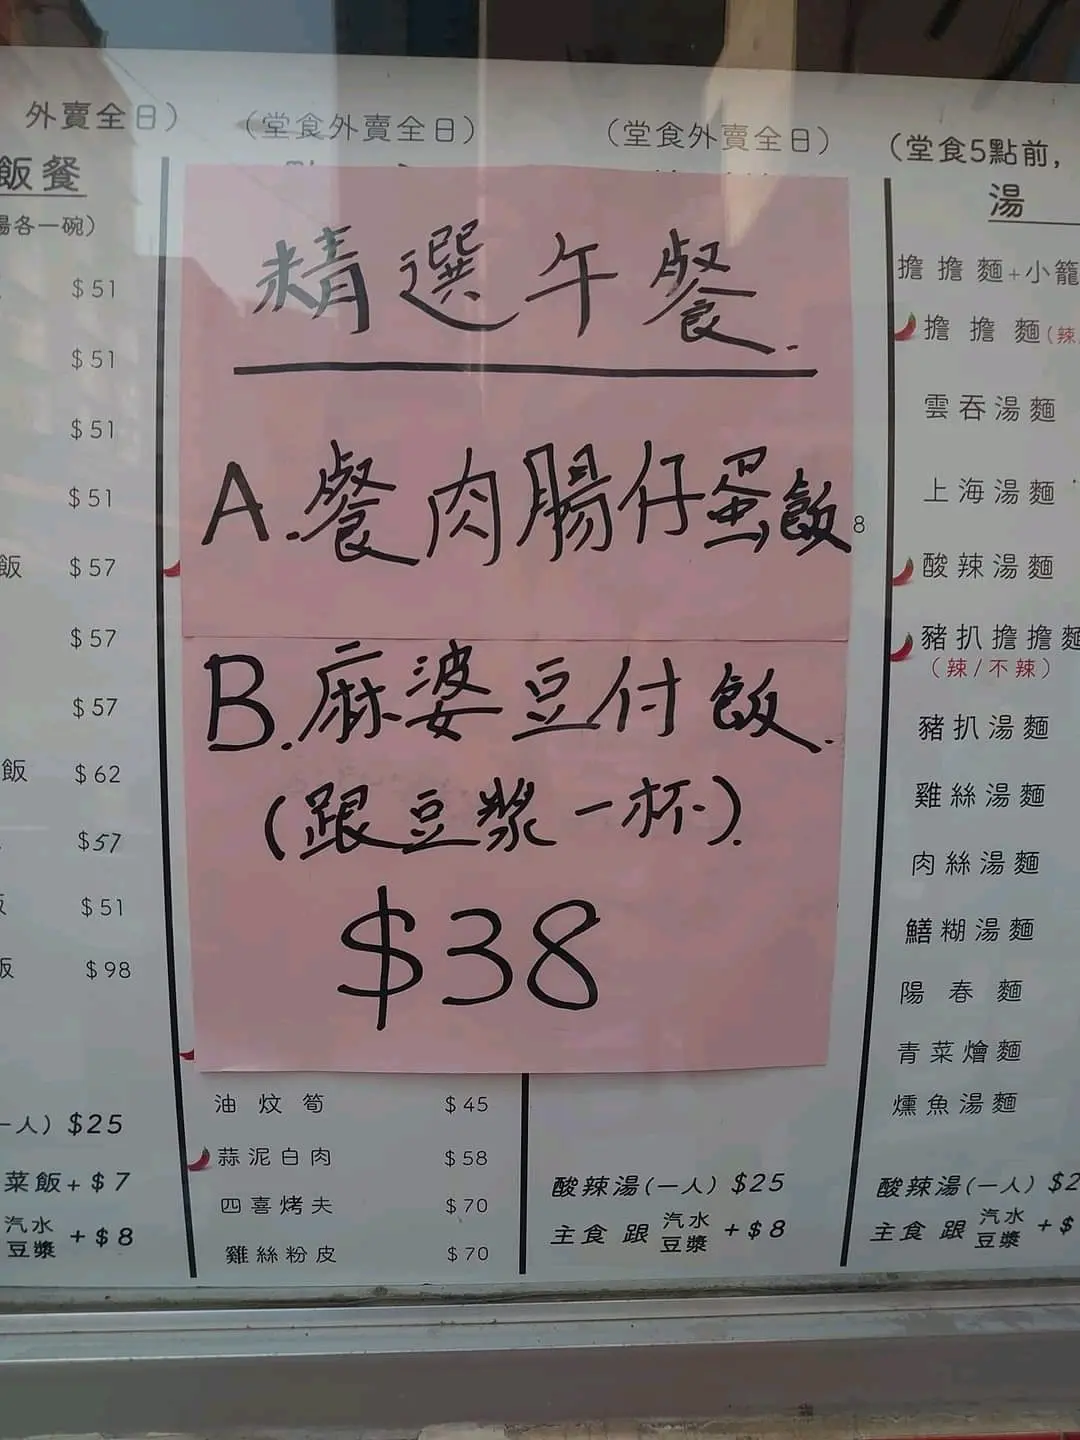 外賣全日）
飯餐
湯各一碗）
$51
$51
$51
$51
飯 $57
$57
$57
飯 $62
$57
$51
$98
一人）$25
菜飯+$7
汽水
豆漿 +$8
（堂食外賣全日）
（堂食外賣全日）
精選午餐
A.餐肉腸仔蛋飯
8
B.麻婆豆付飯.
(跟豆漿一杯).
$38
油炆筍 $45
蒜泥白肉 $58
四喜烤夫 $70
雞絲粉皮 $70
酸辣湯(一人) $25
主食 跟 汽水 +$8
豆漿
（堂食5點前，
湯
擔擔麵+小籠
擔擔麵(辣
雲吞湯麵
上海湯麵
酸辣湯麵
豬扒擔擔麵
（辣/不辣）
豬扒湯麵
雞絲湯麵
肉絲湯麵
鱔糊湯麵
陽春麵
青菜燴麵
燻魚湯麵
酸辣湯(一人) $2
主食 跟 汽水 +$
豆漿